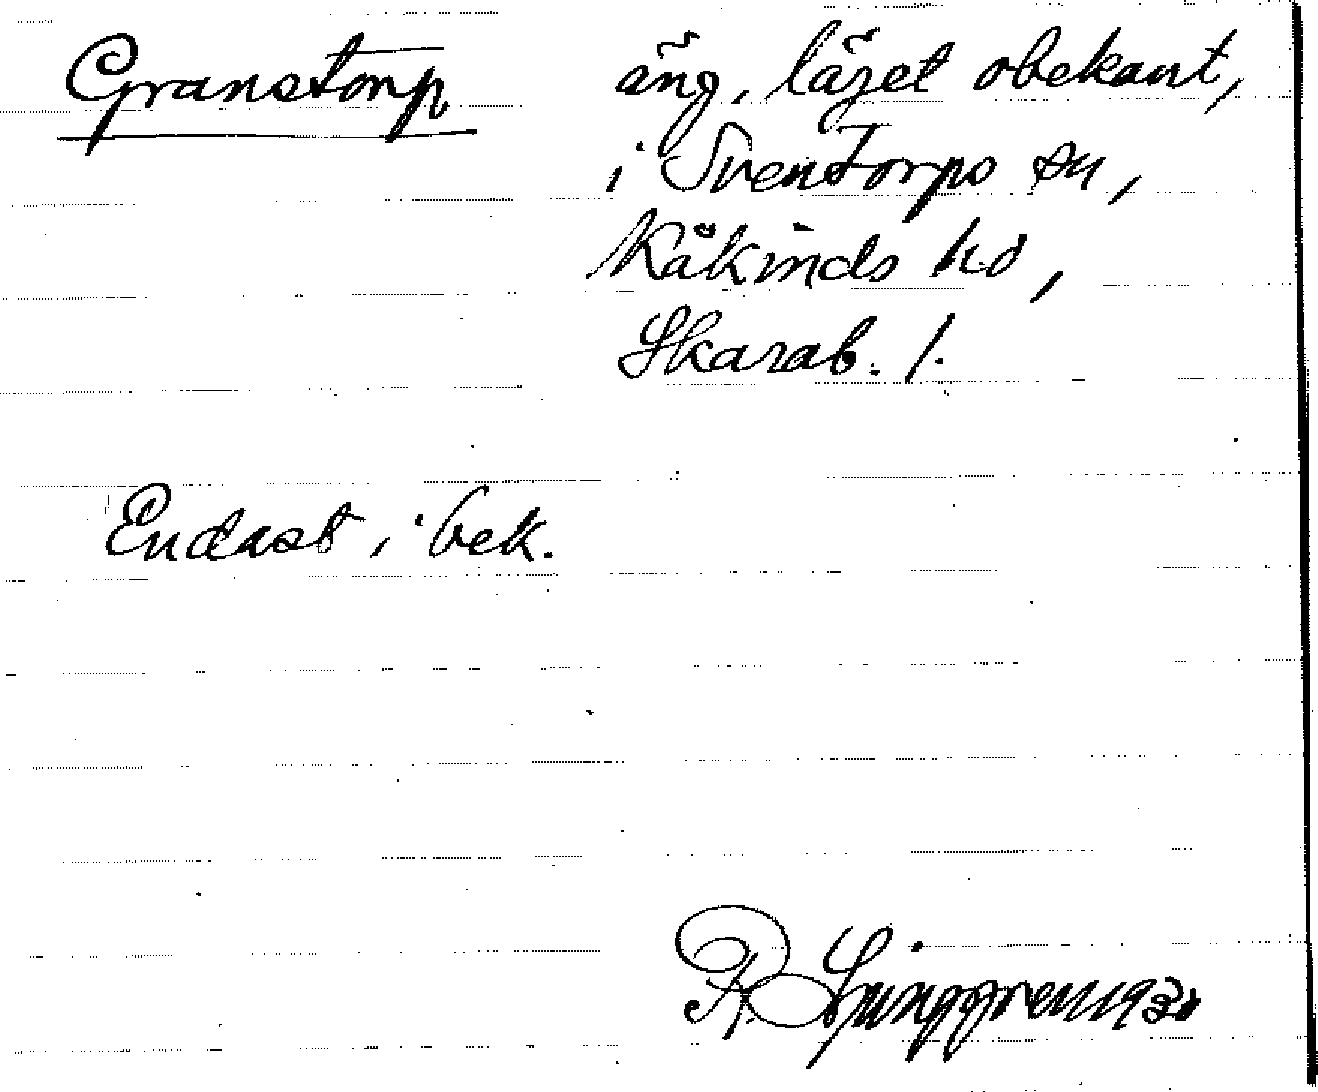 Granstorp
äng, läget obekant,
i Sventorps sn,
Kåkinds hd,
Skarab. l.
Endast i bek.
R Ljunggren 1930